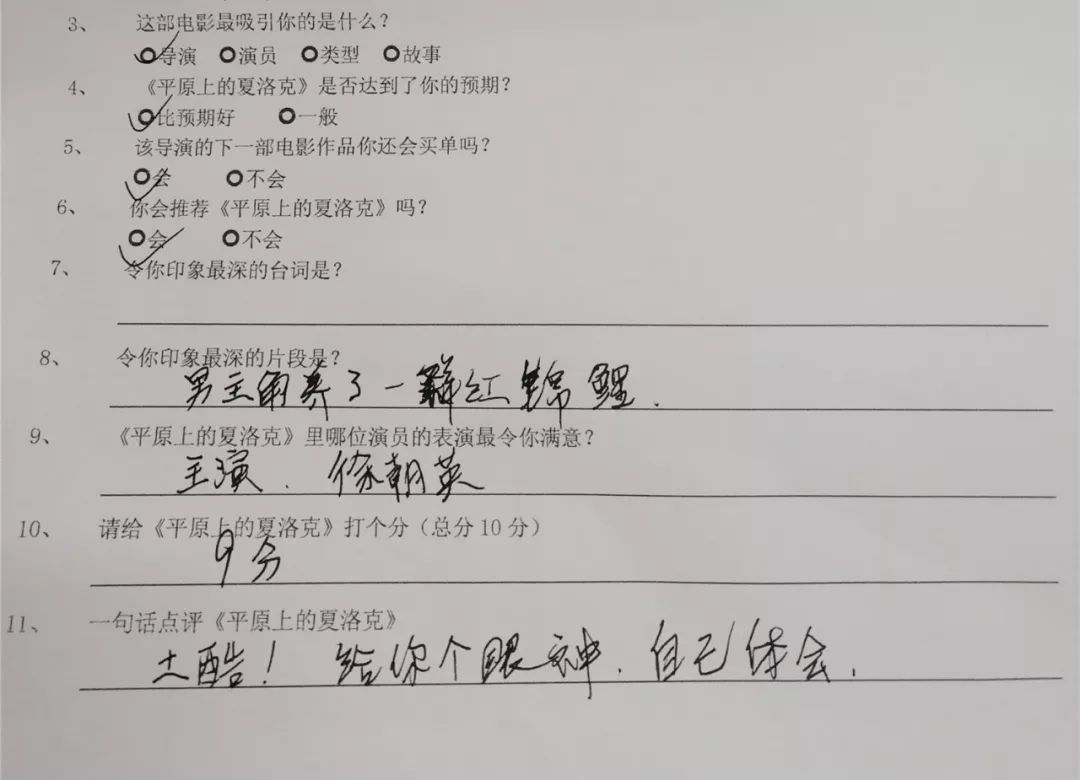 3、 这部电影最吸引你的是什么?
导演 演员 类型 故事
4、 《平原上的夏洛克》是否达到了你的预期?
比预期好 一般
5、 该导演的下一部电影作品你还会买单吗?
会 不会
6、 你会推荐《平原上的夏洛克》吗?
会 不会
7、 令你印象最深的台词是?
8、 令你印象最深的片段是?
男主角养了一群红锦鲤.
9、 《平原上的夏洛克》里哪位演员的表演最令你满意?
主演. 徐朝英
10、 请给《平原上的夏洛克》打个分(总分10分)
9分
11、 一句话点评《平原上的夏洛克》
土酷! 给你个眼神.自己体会.